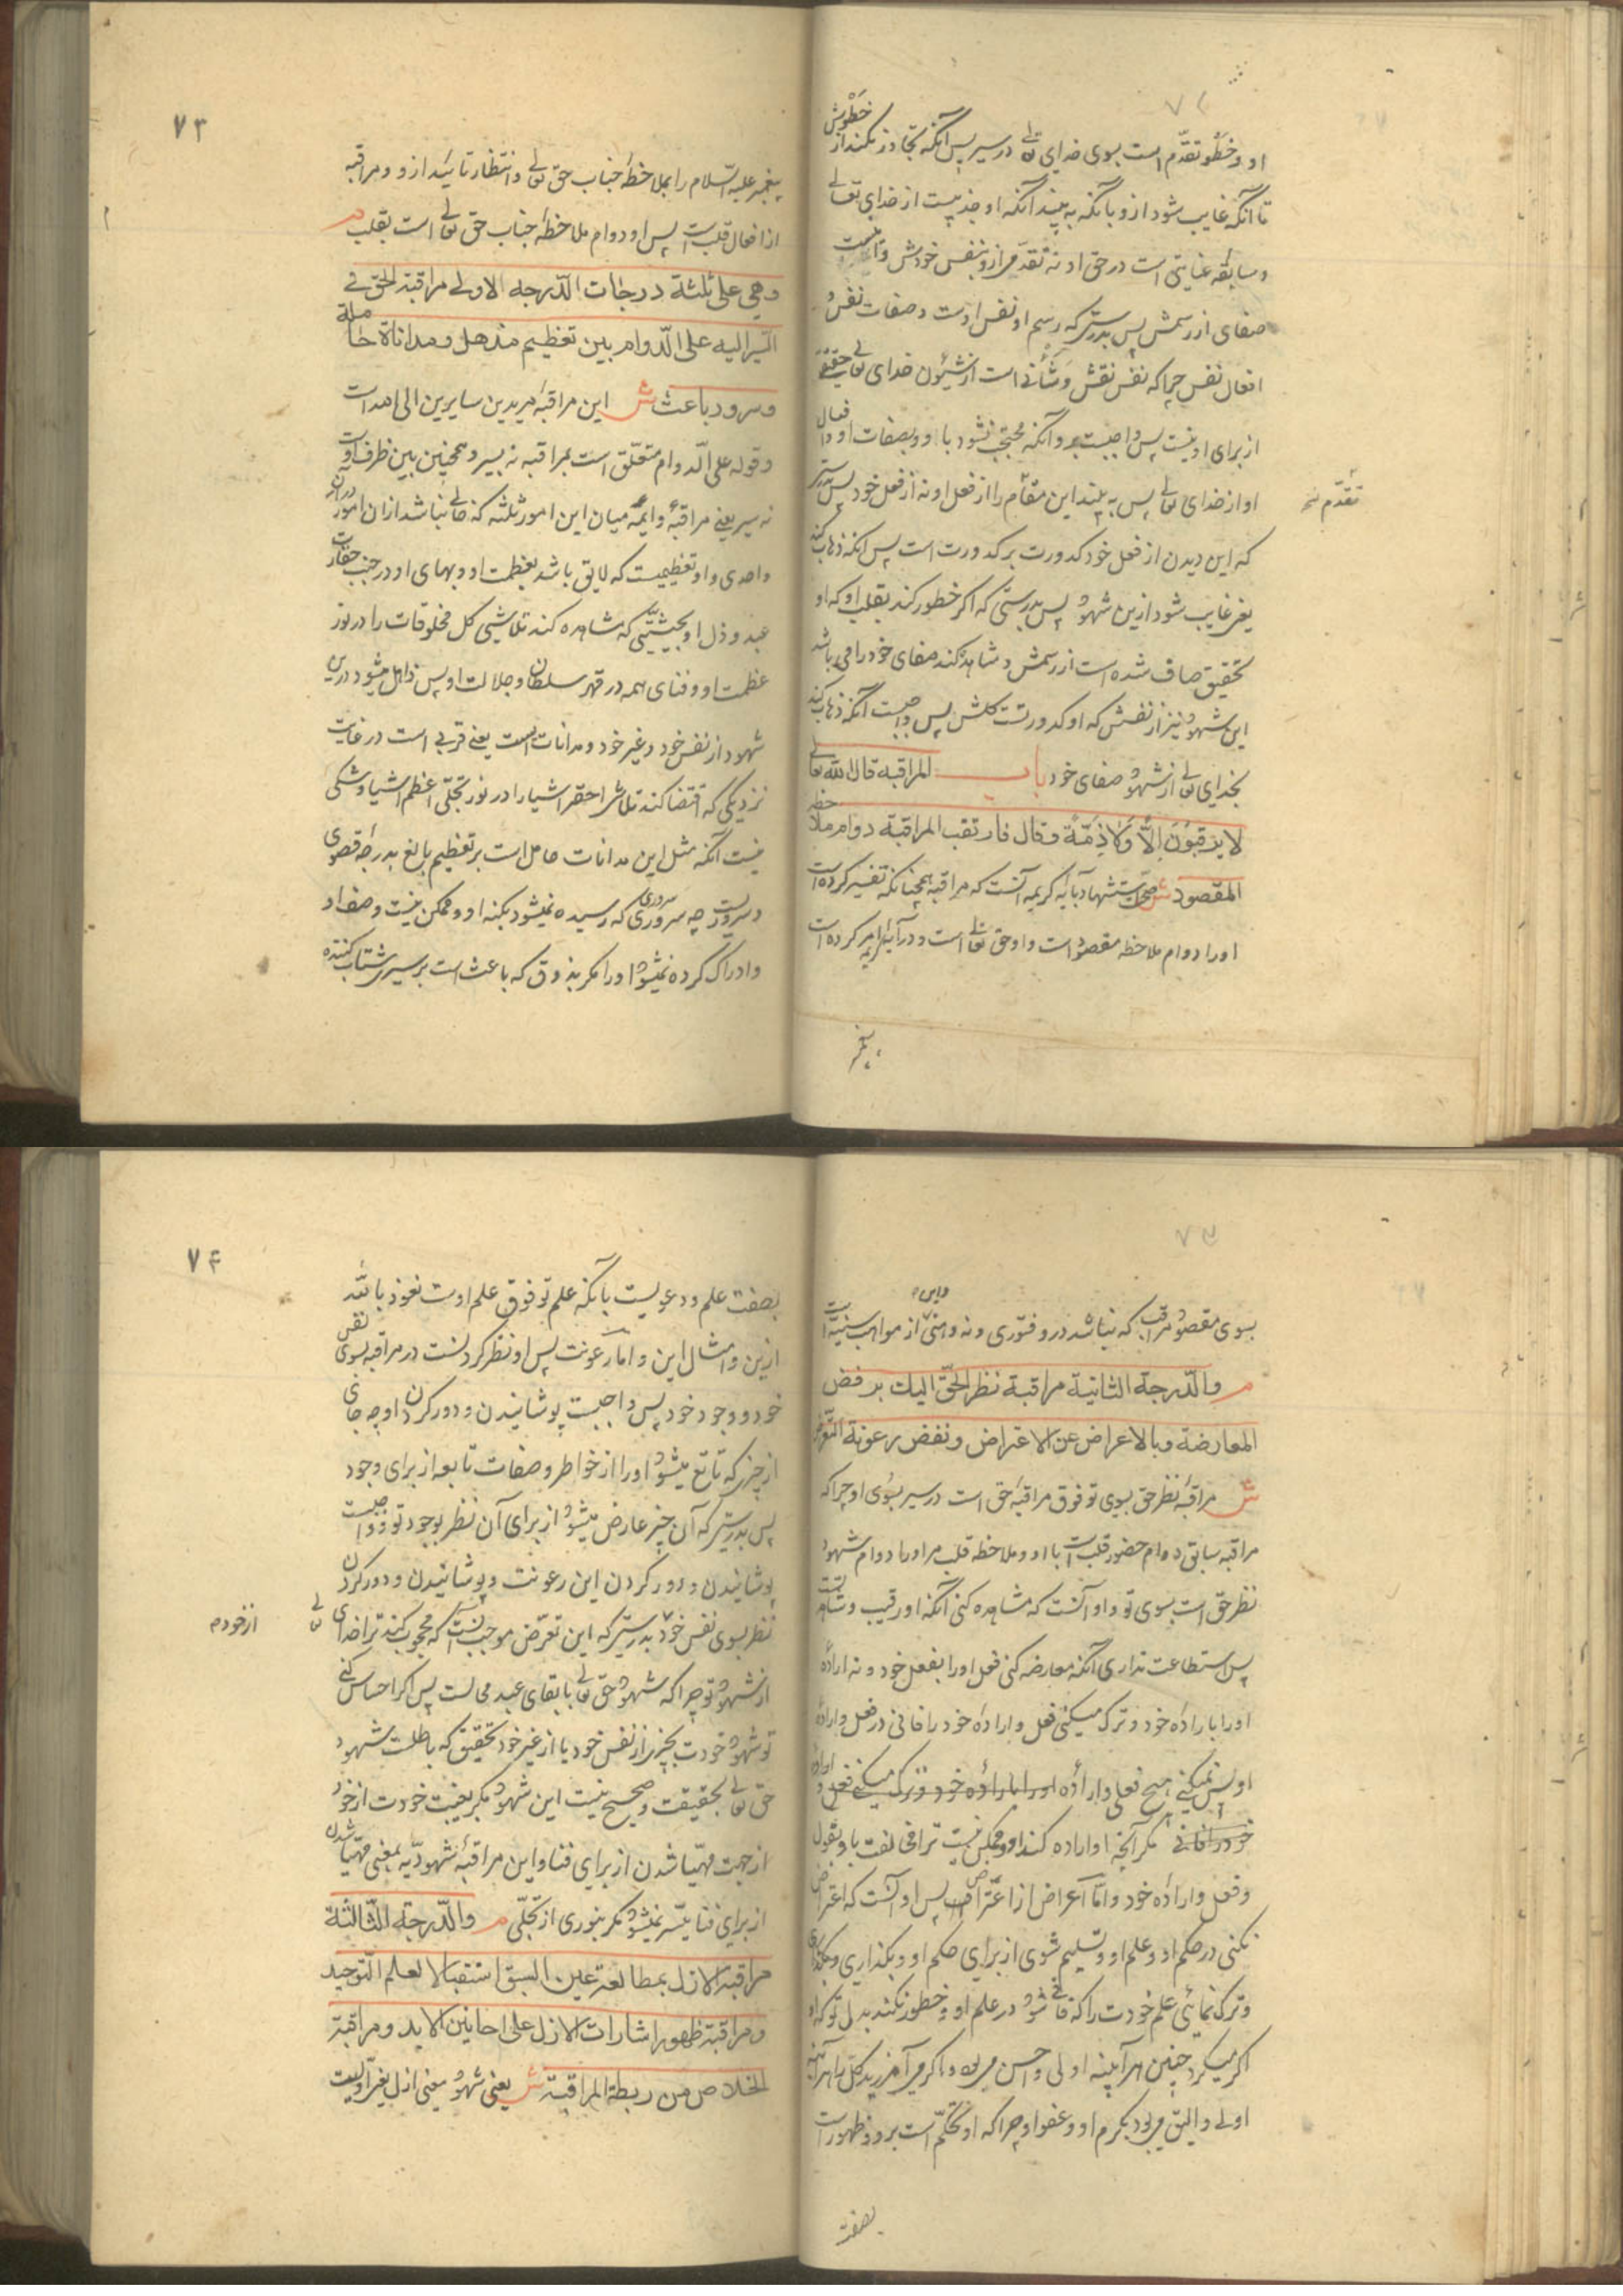 او و خطو تقدّم است بسوی خدای تعالی در سیر پس آنکه تجاوز نکند از خطوش
تا آنکه غایب شود ازو بآنکه به بیند آنکه او جذبیست از خدای تعالی
و سابقه عنایتی است در حق او نه تقدّمی ازو بنفس خودش و
صفای از رسمش پس بدرستی که رسم او نفس اوست و صفات نفس و
افعال نفس چرا که نفس نقش و شأنی است از شئون خدای تعالی حقیقتی
از برای او نیست پس واجبست برو آنکه محتجب نشود باو و بصفات او و افعال
او از خدای تعالی پس به بیند این مقام را از فعل او نه از فعل خود پس بدرستی
تقدّم نسخه
که این دیدن از فعل خود کدورت بر کدورت است پس آنکه ذهاب کند
یعنی غایب شود ازین شهود پس بدرستی که اکر خطور کند بقلب او که او
بتحقیق صاف شده است از رسمش و مشاهده کند صفای خود را می باشد
این شهود نیز از نفسش که او کدورتست کلش پس واجبست آنکه ذهاب کند
بخدای تعالی از شهود صفای خود باب المراقبه قال الله تعالی
لا یرقبون الّا ولا ذمّة وقال فارتقب المراقبة دوام ملاحظه
المقصود ش صحت استشهاد بآیه کریمه آنست که مراقبه همچنانکه تفسیر کرده است
او را دوام ملاحظه مقصود است و او حق تعالی است و در آیه کریمه امر کرده است
پیغمبر
۷۳
پیغمبر علیه السّلام را بملاحظه جناب حق تعالی و انتظار تائید ازو و مراقبه
از افعال قلب است پس او دوام ملاحظه جناب حق تعالی است بقلب م
وهی علی ثلثة درجات الدّرجة الاولی مراقبة الحق فی
السّیر الیه علی الدّوام بین تعظیم مذهل و مداناة حاملة
وسرور باعث ش این مراقبه مریدین سایرین الی الله است
و قوله علی الدّوام متعلّق است بمراقبه نه بسیر و همچنین بین ظرف اوست
نه سیر یعنی مراقبهٔ دایمه میان این امور ثلثه که خالی نباشد از آن امور در آن
واحدی و او تعظیمیست که لایق باشد بعظمت او و بهای او در جنب حقارت
عبد و ذل او بحیثیّتی که مشاهده کند تلاشی کل مخلوقات را در نور
عظمت او و فنای همه در قهر سلطان و جلالت او پس ذاهل میشود درین
شهود از نفس خود و غیر خود و مدانات است یعنی قربی است در غایت
نزدیکی که اقتضا کند تلاشی احقر اشیا را در نور تجلّی اعظم اشیا و شکی
نیست آنکه مثل این مدانات حامل است بر تعظیم بالغ بدرجهٔ قصوی
و سروریست چه سروری که رسیده نمیشود بکنه او و ممکن نیست وصف او
و ادراک کرده نمیشود او را مکر بذوق که باعث است بر سیر شتاب کننده
بسوی مقصود مراقب که نباشد درو فتوری و نه وهنی از مواهب سنیّه است
م والدّرجة الثانیة مراقبة نظر الحقّ الیك برفض
المعارضة وبالاعراض عن الاعتراض ونقض رعونة التعرّض
ش مراقبهٔ نظر حق بسوی تو فوق مراقبهٔ حق است در سیر بسوی او چرا که
مراقبه سابق دوام حضور قلب است با او و ملاحظه قلب مر او را دوام شهود
نظر حق است بسوی تو و او آنست که مشاهده کنی آنکه او رقیب و شاهد تست
پس استطاعت نداری آنکه معارضه کنی فعل او را بفعل خود و نه ارادهٔ
او را باراده خود و ترک میکنی فعل و اراده خود را فانی در فعل و ارادهٔ
او پس نمیکنی هیچ فعلی و ارادهٔ او را باراده خود و ترک میکنی فعل و ارادهٔ
خود را فانی مکر آنچه او اراده کند او و ممکن نیست ترا مخالفت با او بقول
و فعل و اراده خود و امّا اعراض از اعتراض پس او آنست که اعتراض
نکنی در حکم او و علم او و تسلیم شوی از برای حکم او و بکذاری
و ترک نمائی علم خودت را که فانی شود در علم او و خطور نکند بدل تو که او
اکر میکرد چنین هر آینه اولی و احسن می بود و اکر می آمرزید کل را هر آینه
اولی و الیق می بود بکرم او و عفو او چرا که او تحکّم است برو و ظهور است
بصفت
۷۴
بصفت علم و دعویست بآنکه علم تو فوق علم اوست نعوذ بالله
ازین و امثال این و امّا رعونت پس او نظر کردنست در مراقبه بسوی نفس
خود و وجود خود پس واجبست پوشانیدن و دور کردن او چه جای
از چیزی که تابع میشود او را از خواطر و صفات تابعه از برای وجود
پس بدرستی که آن چیز عارض میشود از برای آن نظر بوجود تو و واجبست
پوشانیدن و دور کردن این رعونت و پوشانیدن و دور کردن
نظر بسوی نفس خود بدرستی که این تعرّض موجب آنست که محجوب کند ترا خدای تعالی
از خود م
از شهود تو چرا که شهود حق تعالی با بقای عبد محالست پس اکر احساس کنی
تو شهود خودت بچیزی از نفس خود یا از غیر خود بتحقیق که باطلست شهود
حق تعالی بحقیقت و صحیح نیست این شهود مکر بغیبت خودت از خود
از جهت مهیّا شدن از برای فنا و این مراقبهٔ شهودیّه بمعنی مهیّا شدن
از برای فنا میسّر نمیشود مکر بنوری از تجلّی م والدّرجة الثّالثة
مراقبة الازل بمطالعة عین السبق استقبالا لعلم التّوحید
ومراقبة ظهور اشارات الازل علی احایین الابد ومراقبة
الخلاص من ربطة المراقبة ش یعنی شهود معنی ازل یعنی اوّلیت